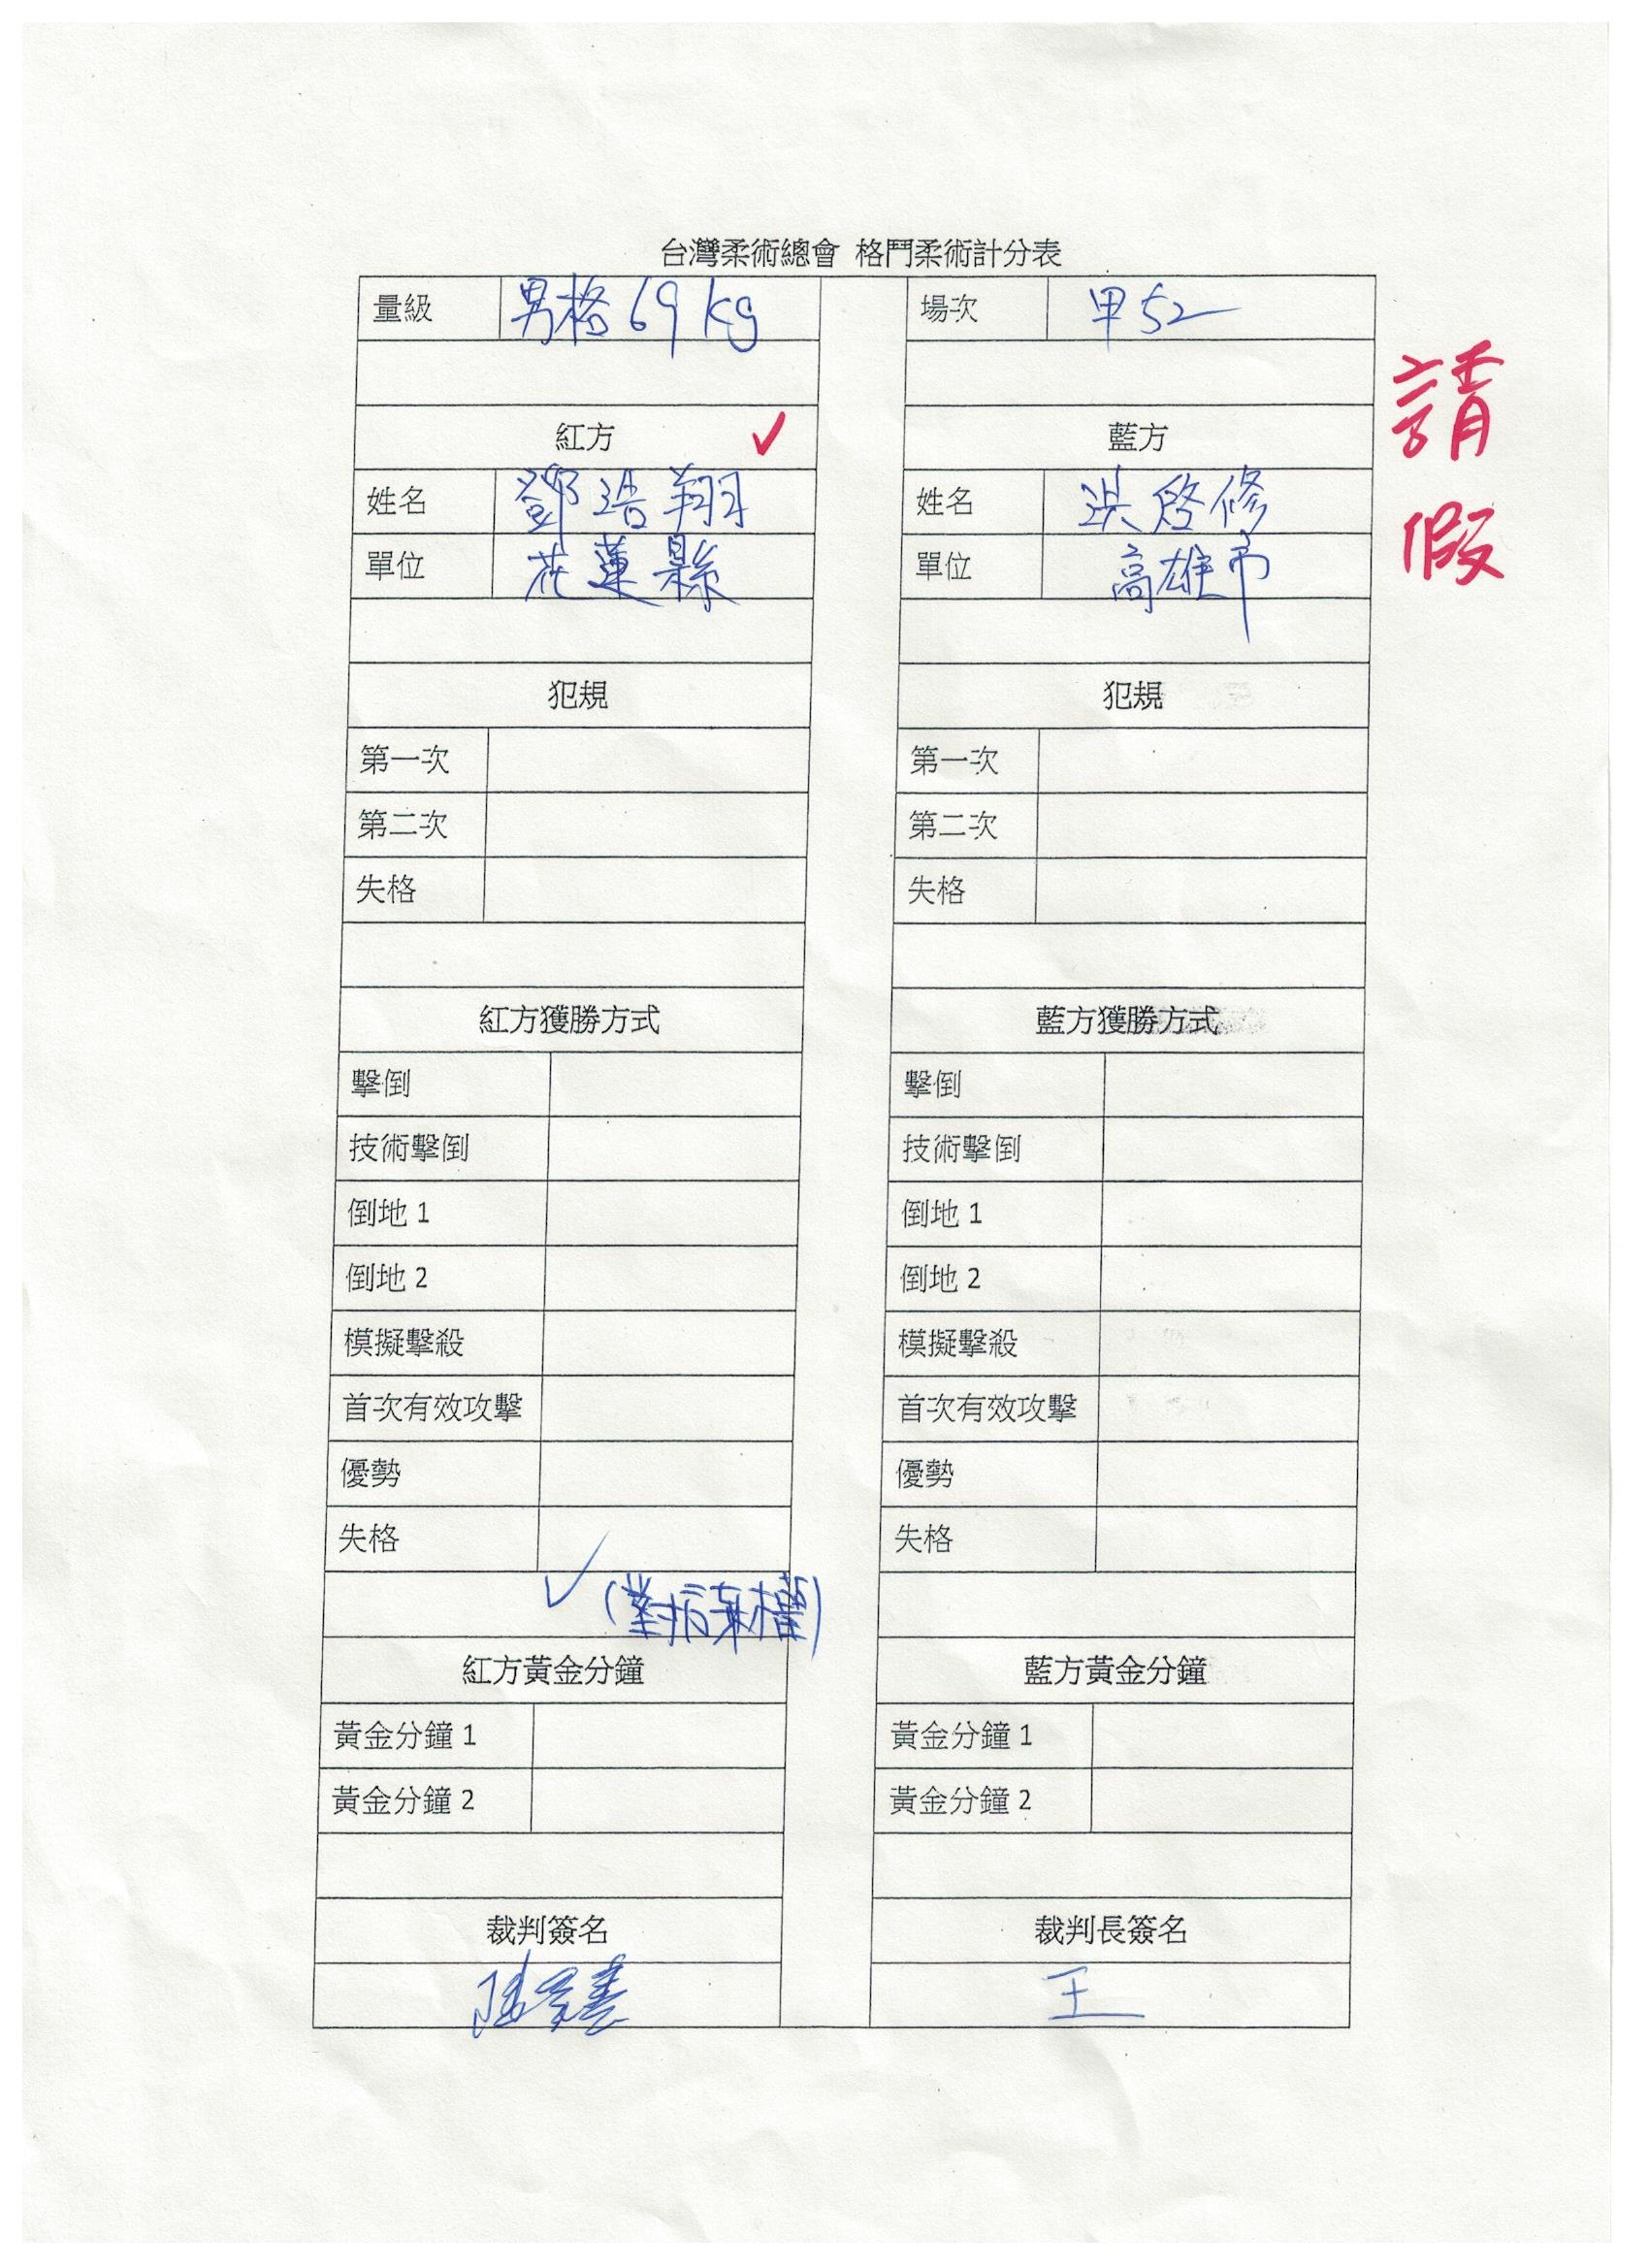 台灣柔術總會 格鬥柔術計分表
量級 男格 69 kg 場次 甲52
請假
紅方 ✓ 藍方
姓名 鄧浩翔 姓名 洪啓修
單位 花蓮縣 單位 高雄市
犯規 犯規
第一次 第一次
第二次 第二次
失格 失格
紅方獲勝方式 藍方獲勝方式
擊倒 擊倒
技術擊倒 技術擊倒
倒地 1 倒地 1
倒地 2 倒地 2
模擬擊殺 模擬擊殺
首次有效攻擊 首次有效攻擊
優勢 優勢
失格 失格
✓ (對方棄權)
紅方黃金分鐘 藍方黃金分鐘
黃金分鐘 1 黃金分鐘 1
黃金分鐘 2 黃金分鐘 2
裁判簽名 裁判長簽名
王